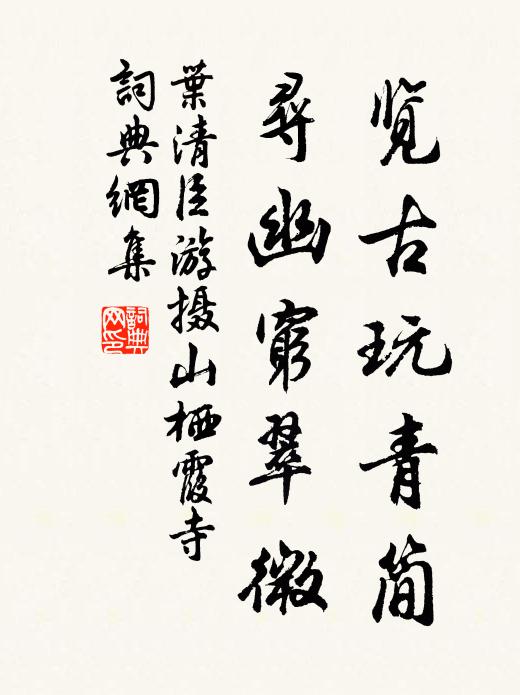 览古玩青简
尋幽窮翠微
葉清臣游摄山栖霞寺
詞典網集
詞典网印